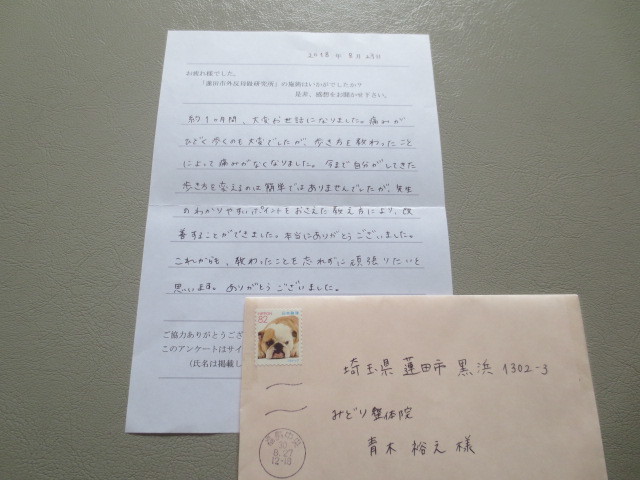 2018 年 8月 25日
お疲れ様でした。
「蓮田市外反母趾研究所」の施術はいかがでしたか?
是非、感想をお聞かせ下さい。
約1ヵ月間、大変お世話になりました。痛みが
ひどく歩くのも大変でしたが、歩き方を教わったこと
によって痛みがなくなりました。今まで自分がしてきた
歩き方を変えるのは簡単ではありませんでしたが、先生
のわかりやすいポイントをおさえた教え方により、改
善することができました。本当にありがとうございました。
これからも、教わったことを忘れずに頑張りたいと
思います。ありがとうございました。
ご協力ありがとうござ
このアンケートはサイ
(氏名は掲載し
82
日本郵便
埼玉県 蓮田市 黒浜 1302-3
みどり整体院
青木 裕之 様
30
8.27
12-18